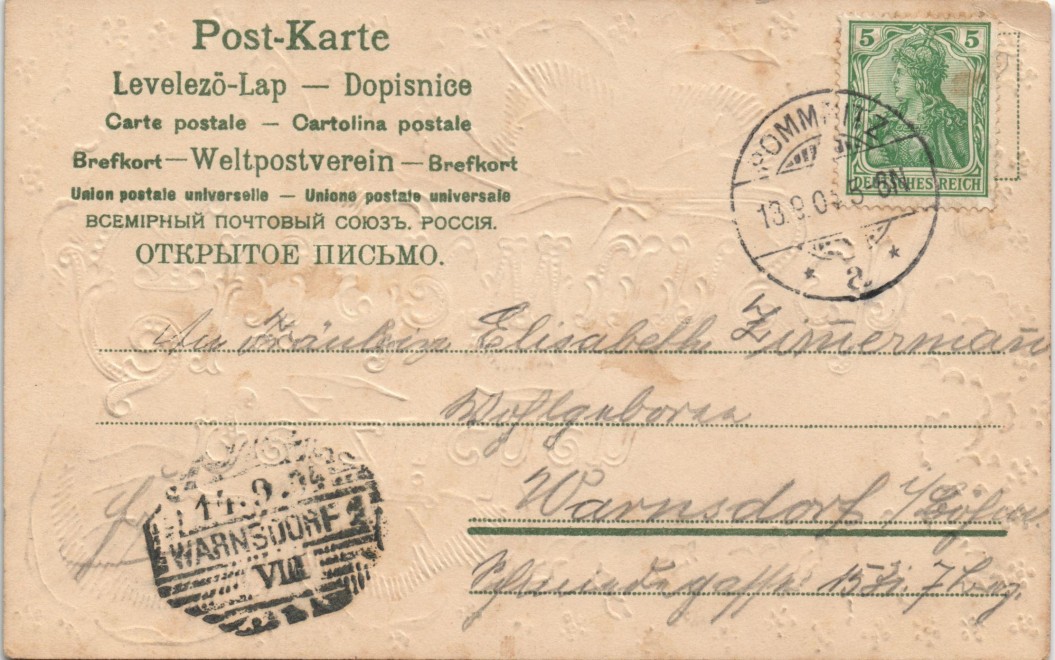 Post-Karte
Levelező-Lap — Dopisnice
Carte postale — Cartolina postale
Brefkort — Weltpostverein — Brefkort
Union postale universelle — Unione postale universale
ВСЕМІРНЫЙ ПОЧТОВЫЙ СОЮЗЪ. РОССІЯ.
ОТКРЫТОЕ ПИСЬМО.
5 5
DEUTSCHES REICH
POMMRITZ
13.9.04 8N
* a *
An Fräulein Elisabeth Zim̄erman̄
Wohlgeboren
Warnsdorf i/Böhm
Schmiedegasse
14.9.04
WARNSDORF 2
VIII